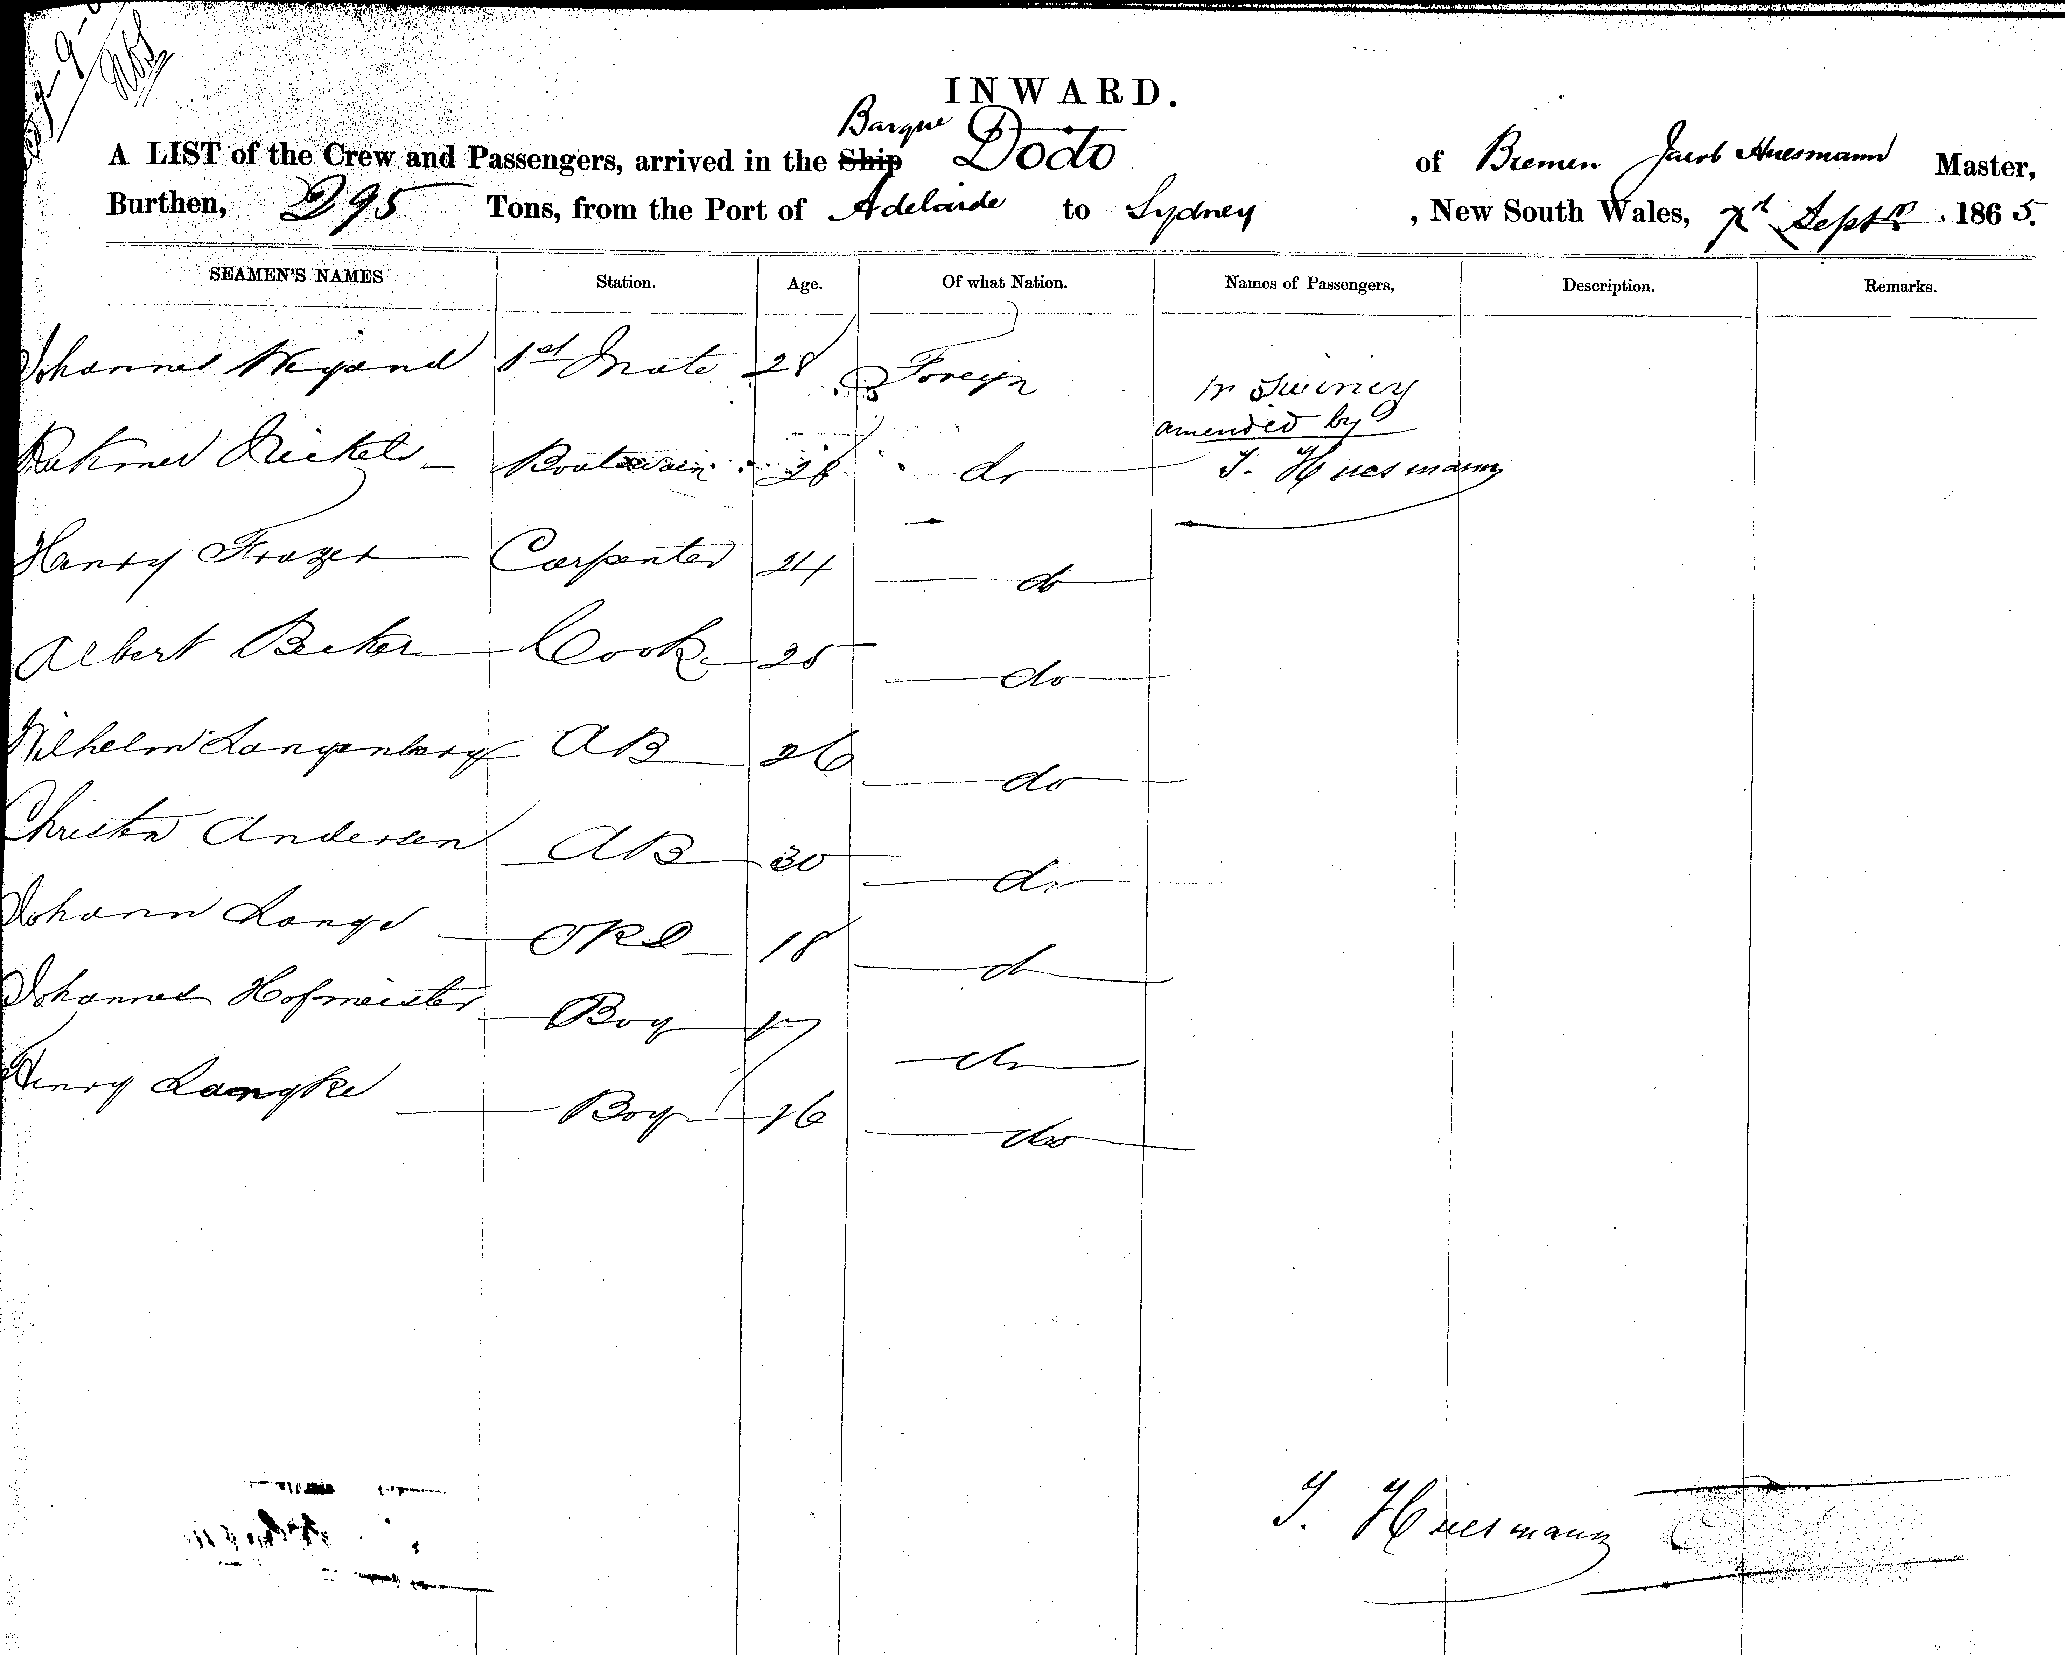 INWARD.
Barque
A LIST of the Crew and Passengers, arrived in the Ship Dodo of Bremen Jacob Huesmann Master,
Burthen, 295 Tons, from the Port of Adelaide to Sydney , New South Wales, 7th Septr. 1865.
SEAMEN'S NAMES Station. Age. Of what Nation. Names of Passengers, Description. Remarks.
Johannes Weyand 1st Mate 28 Foreign
Mr Swiney
amended by
Nickels Boatswain 28 do J. Huesmann
Henry Frazer Carpenter 24 do
Albert Becker Cook 25 do
Wilhelm Langenberg AB 26 do
Christn Andersen AB 30 do
Johann Lange ORD 18 do
Johannes Hofmeister Boy 17 do
Henry Langke Boy 16 do
J. Huesmann